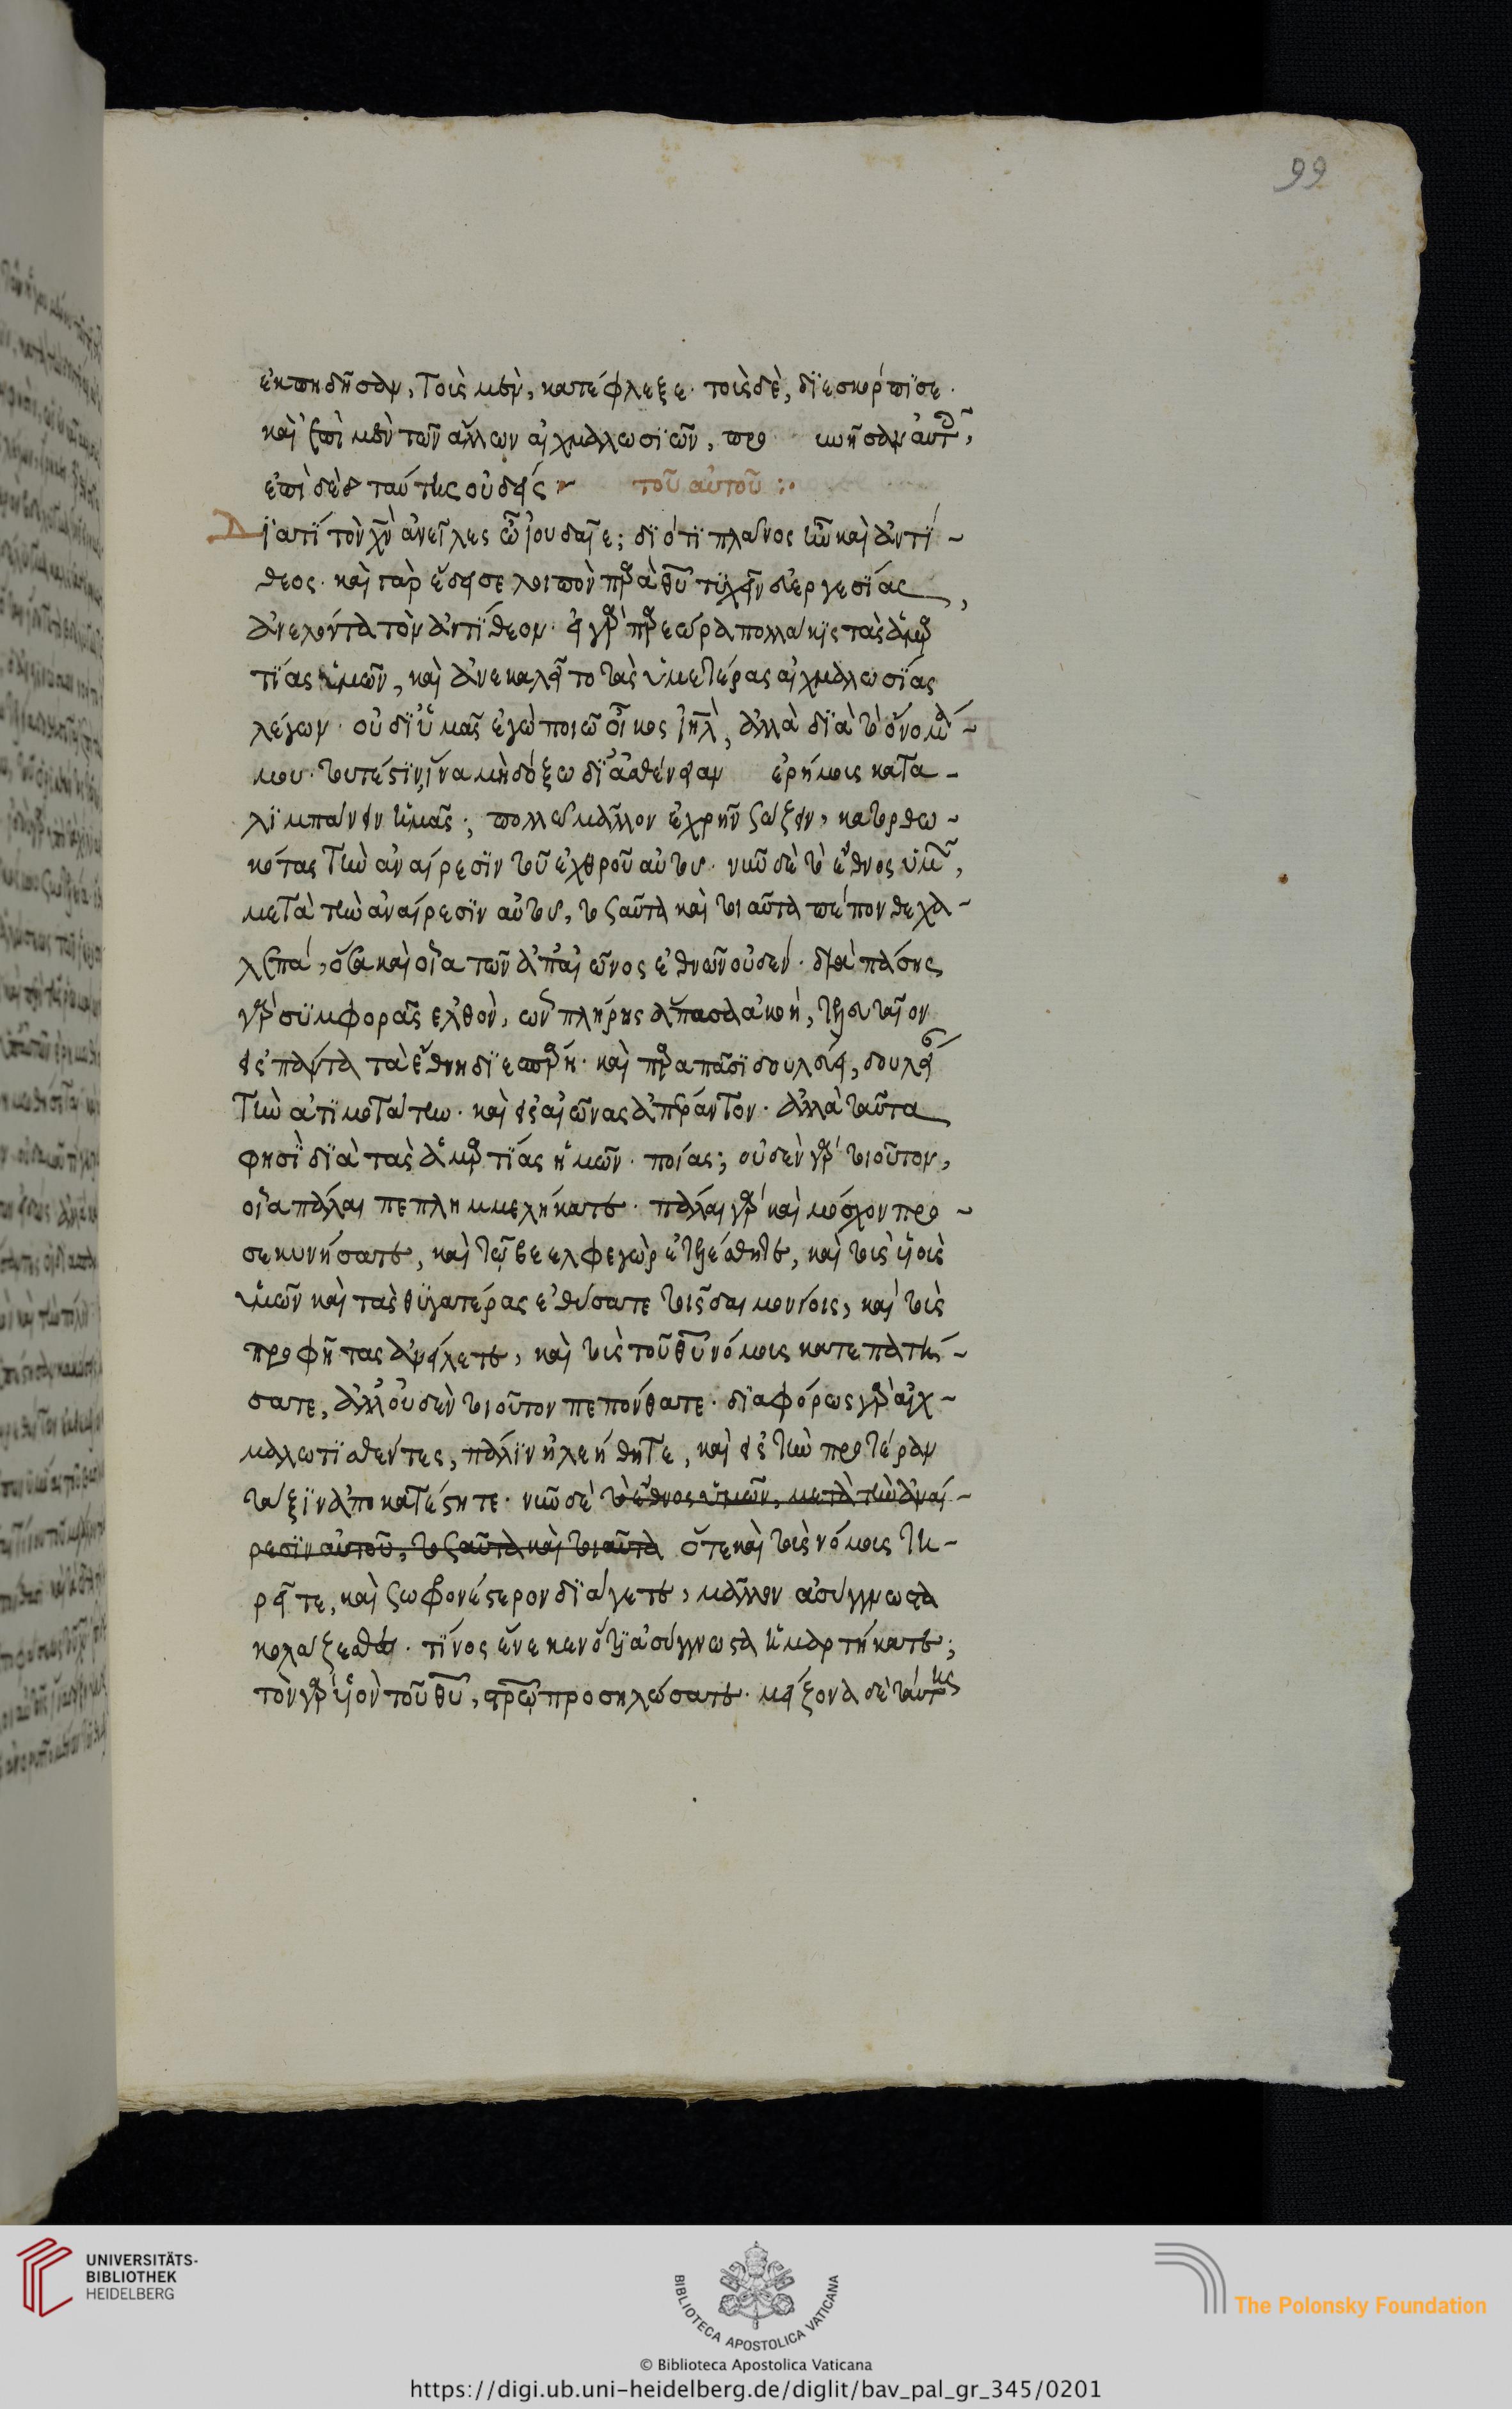 99
ἐκπηδῆσαν, τοὺς μὲν, κατέφλεξε· τοὺς δὲ, διεσκόρπισε·
καὶ ἐπὶ μὲν τῶν ἄλλων αἰχμαλωσιῶν, προ μῆσαν αὐτ
ἐπὶ δὲ ταύτης οὐδείς τοῦ αὐτοῦ :·
Διατί τὸν χν ἀνεῖλες ὦ ἰουδαῖε; διότι πλάνος ἦν καὶ ἀντί-
θεος· καὶ γὰρ ἔδει σε λοιπὸν πρὰ θυ τυχεῖν εὐεργεσίας,
ἀνελόντα τὸν ἀντίθεον· εἰ γὰρ παρεώρα πολλάκις τὰς ἁμαρ
τίας ὑμῶν, καὶ ἀνεκαλεῖτο τὰς ὑμετέρας αἰχμαλωσίας
λέγων· οὐ δι' ὑμᾶς ἐγὼ ποιῶ οἶκος ιηλ, ἀλλὰ διὰ τὸ ὄνομά-
μου· τουτέστιν, ἵνα μὴ δόξω δι' ἀσθένειαν ἐρήμους κατα-
λιμπάνειν ὑμᾶς; πολλῶ μᾶλλον ἐχρῆν σώζειν, κατορθω-
κότας τὴν ἀναίρεσιν τοῦ ἐχθροῦ αὐτοῦ· νῦν δὲ τὸ ἔθνος ὑμῶν,
μετὰ τὴν ἀναίρεσιν αὐτοῦ, τοσαῦτα καὶ τοιαῦτα πέπονθε χα-
λεπά, ὅσα καὶ οἷα τῶν ἀπ' αἰῶνος ἐθνῶν οὐδέν· διὰ πάσης
γὰρ συμφορᾶς ἐλθὸν, ὧν πλήρης ἅπασα ἀκοή, τελευταῖον
εἰς πάντα τὰ ἔθνη διεσπάρη· καὶ παρὰ πᾶσι δουλεύει, δουλεί
τὴν ἀτιμοτάτην· καὶ εἰς αἰῶνας ἀπέραντον· ἀλλὰ ταῦτα
φησὶ διὰ τὰς ἁμαρτίας ἡμῶν· ποίας; οὐδὲν γὰρ τοιοῦτον,
οἷα πάλαι πεπλημμελήκατε· πάλαι γὰρ καὶ μόσχον προ-
σεκυνήσατε, καὶ τῶ βεελφεγὼρ ἐτελέσθητε, καὶ τοὺς υἱοὺς
ὑμῶν καὶ τὰς θυγατέρας ἐθύσατε τοῖς δαιμονίοις, καὶ τοὺς
προφήτας ἀνείλετε, καὶ τοὺς τοῦ θυ νόμους κατεπατή-
σατε, ἀλλ' οὐδὲν τοιοῦτον πεπόνθατε· διαφόρως γὰρ αἰχ-
μαλωτισθέντες, πάλιν ἠλεήθητε, καὶ εἰς τὴν προτέραν
τάξιν ἀποκατέστητε· νῦν δὲ τὸ ἔθνος ὑμῶν, μετὰ τὴν ἀναί-
ρεσιν αὐτοῦ, τοσαῦτα καὶ τοιαῦτα ὅτε καὶ τοὺς νόμους τη-
ρεῖτε, καὶ σωφρονέστερον διάγετε, μᾶλλον ἀσύγγνωστα
κολάζεσθε· τίνος ἕνεκεν ὅτι ἀσύγγνωστα ἡμαρτήκατε;
τὸν γὰρ υἱὸν τοῦ θυ, στρῶ προσηλώσατε· μείζονα δὲ ταύτης
UNIVERSITÄTS-
BIBLIOTHEK
HEIDELBERG
BIBLIOTECA APOSTOLICA VATICANA
The Polonsky Foundation
© Biblioteca Apostolica Vaticana
https://digi.ub.uni-heidelberg.de/diglit/bav_pal_gr_345/0201